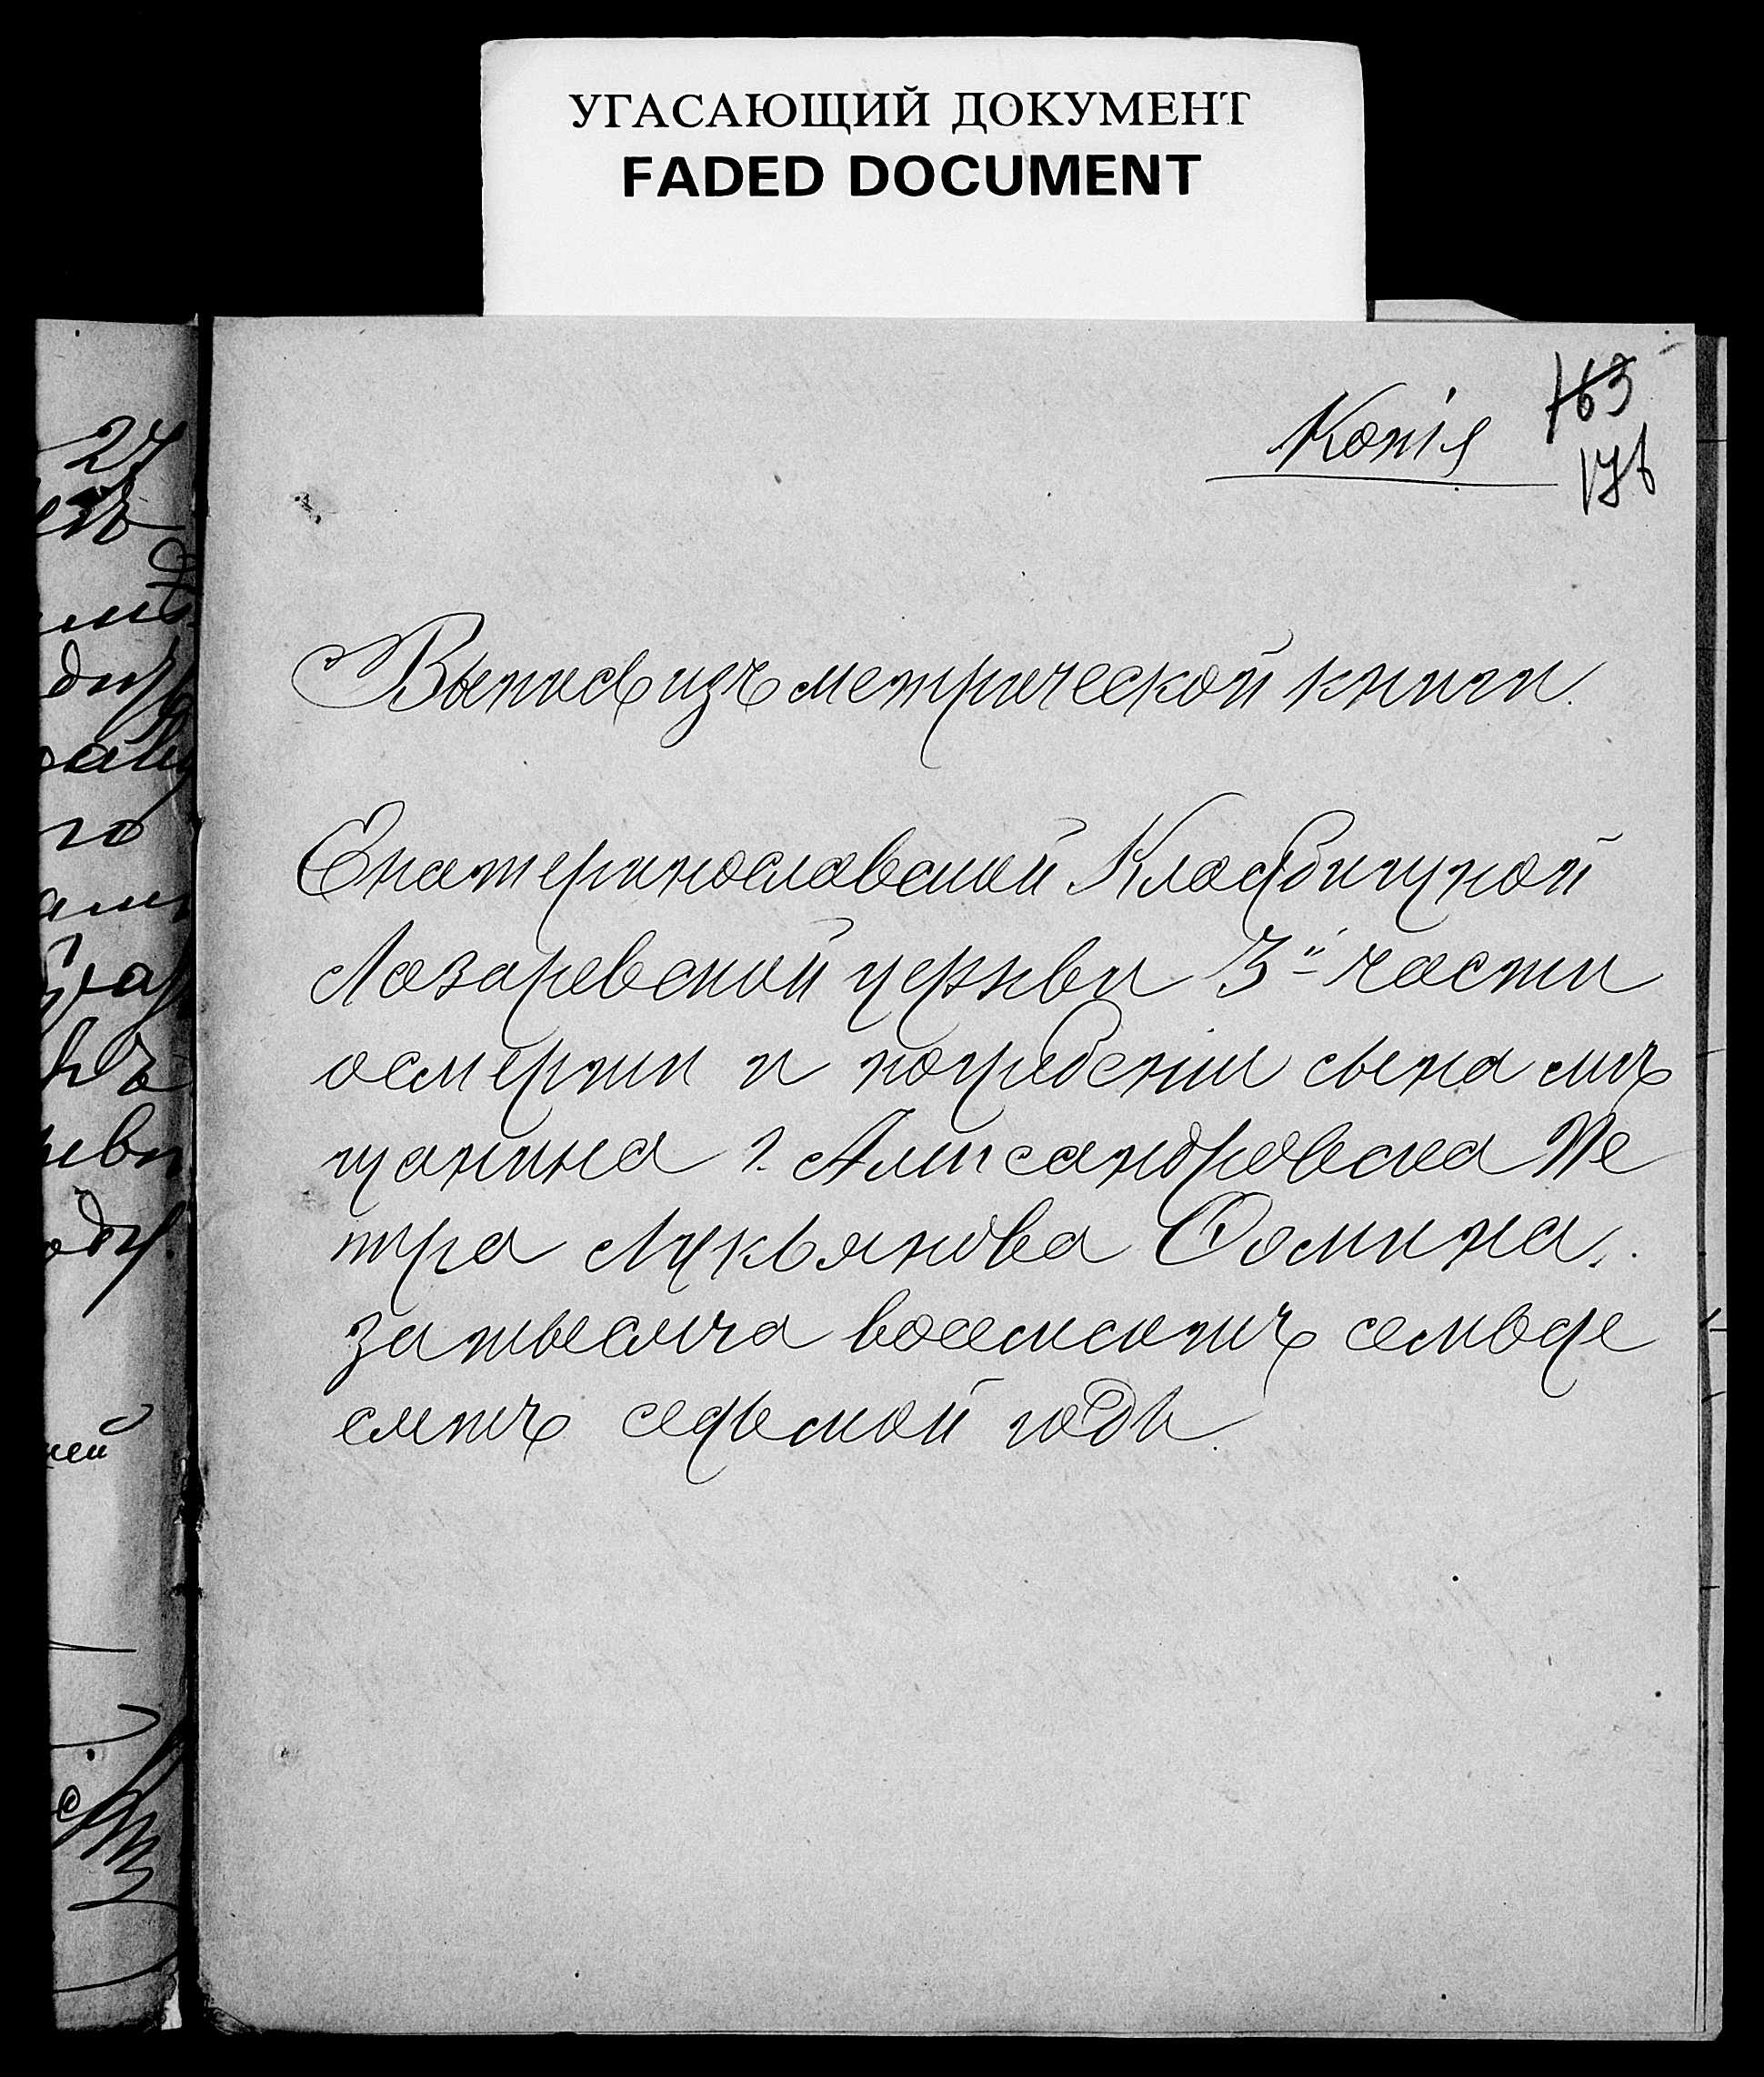 УГАСАЮЩИЙ ДОКУМЕНТ
FADED DOCUMENT
163
Копія
176
Выпись изъ метрической книги.
Екатеринославской Кладбищной
Лазаревской церкви 3й части
о смерти и погребеніи сына мѣ
щанина г. Александровска Пе
тра Лукьянова Фомина,
за тысяча восемсотъ семьде
сятъ седьмой годъ.